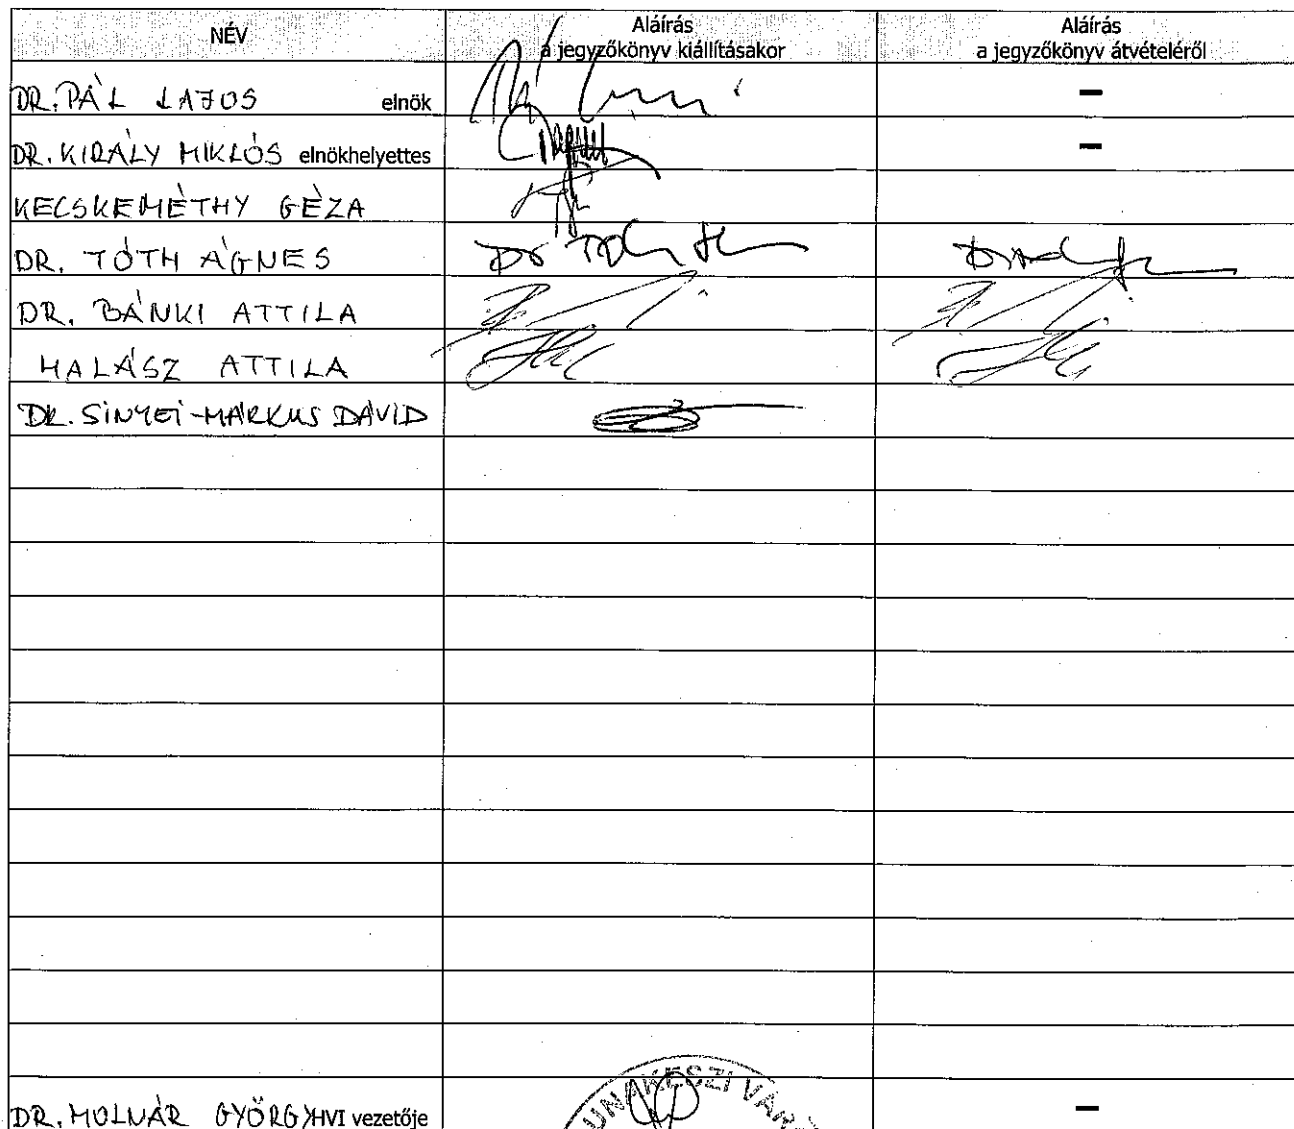 NÉV Aláírás a jegyzőkönyv kiállításakor Aláírás a jegyzőkönyv átvételéről
DR. PÁL LAJOS elnök –
DR. KIRÁLY MIKLÓS elnökhelyettes –
KECSKEMÉTHY GÉZA
DR. TÓTH ÁGNES
DR. BÁNKI ATTILA
HALÁSZ ATTILA
DR. SINYEI-MÁRKUS DÁVID
UNAKESZI VÁR
DR. MOLNÁR GYÖRGY HVI vezetője –